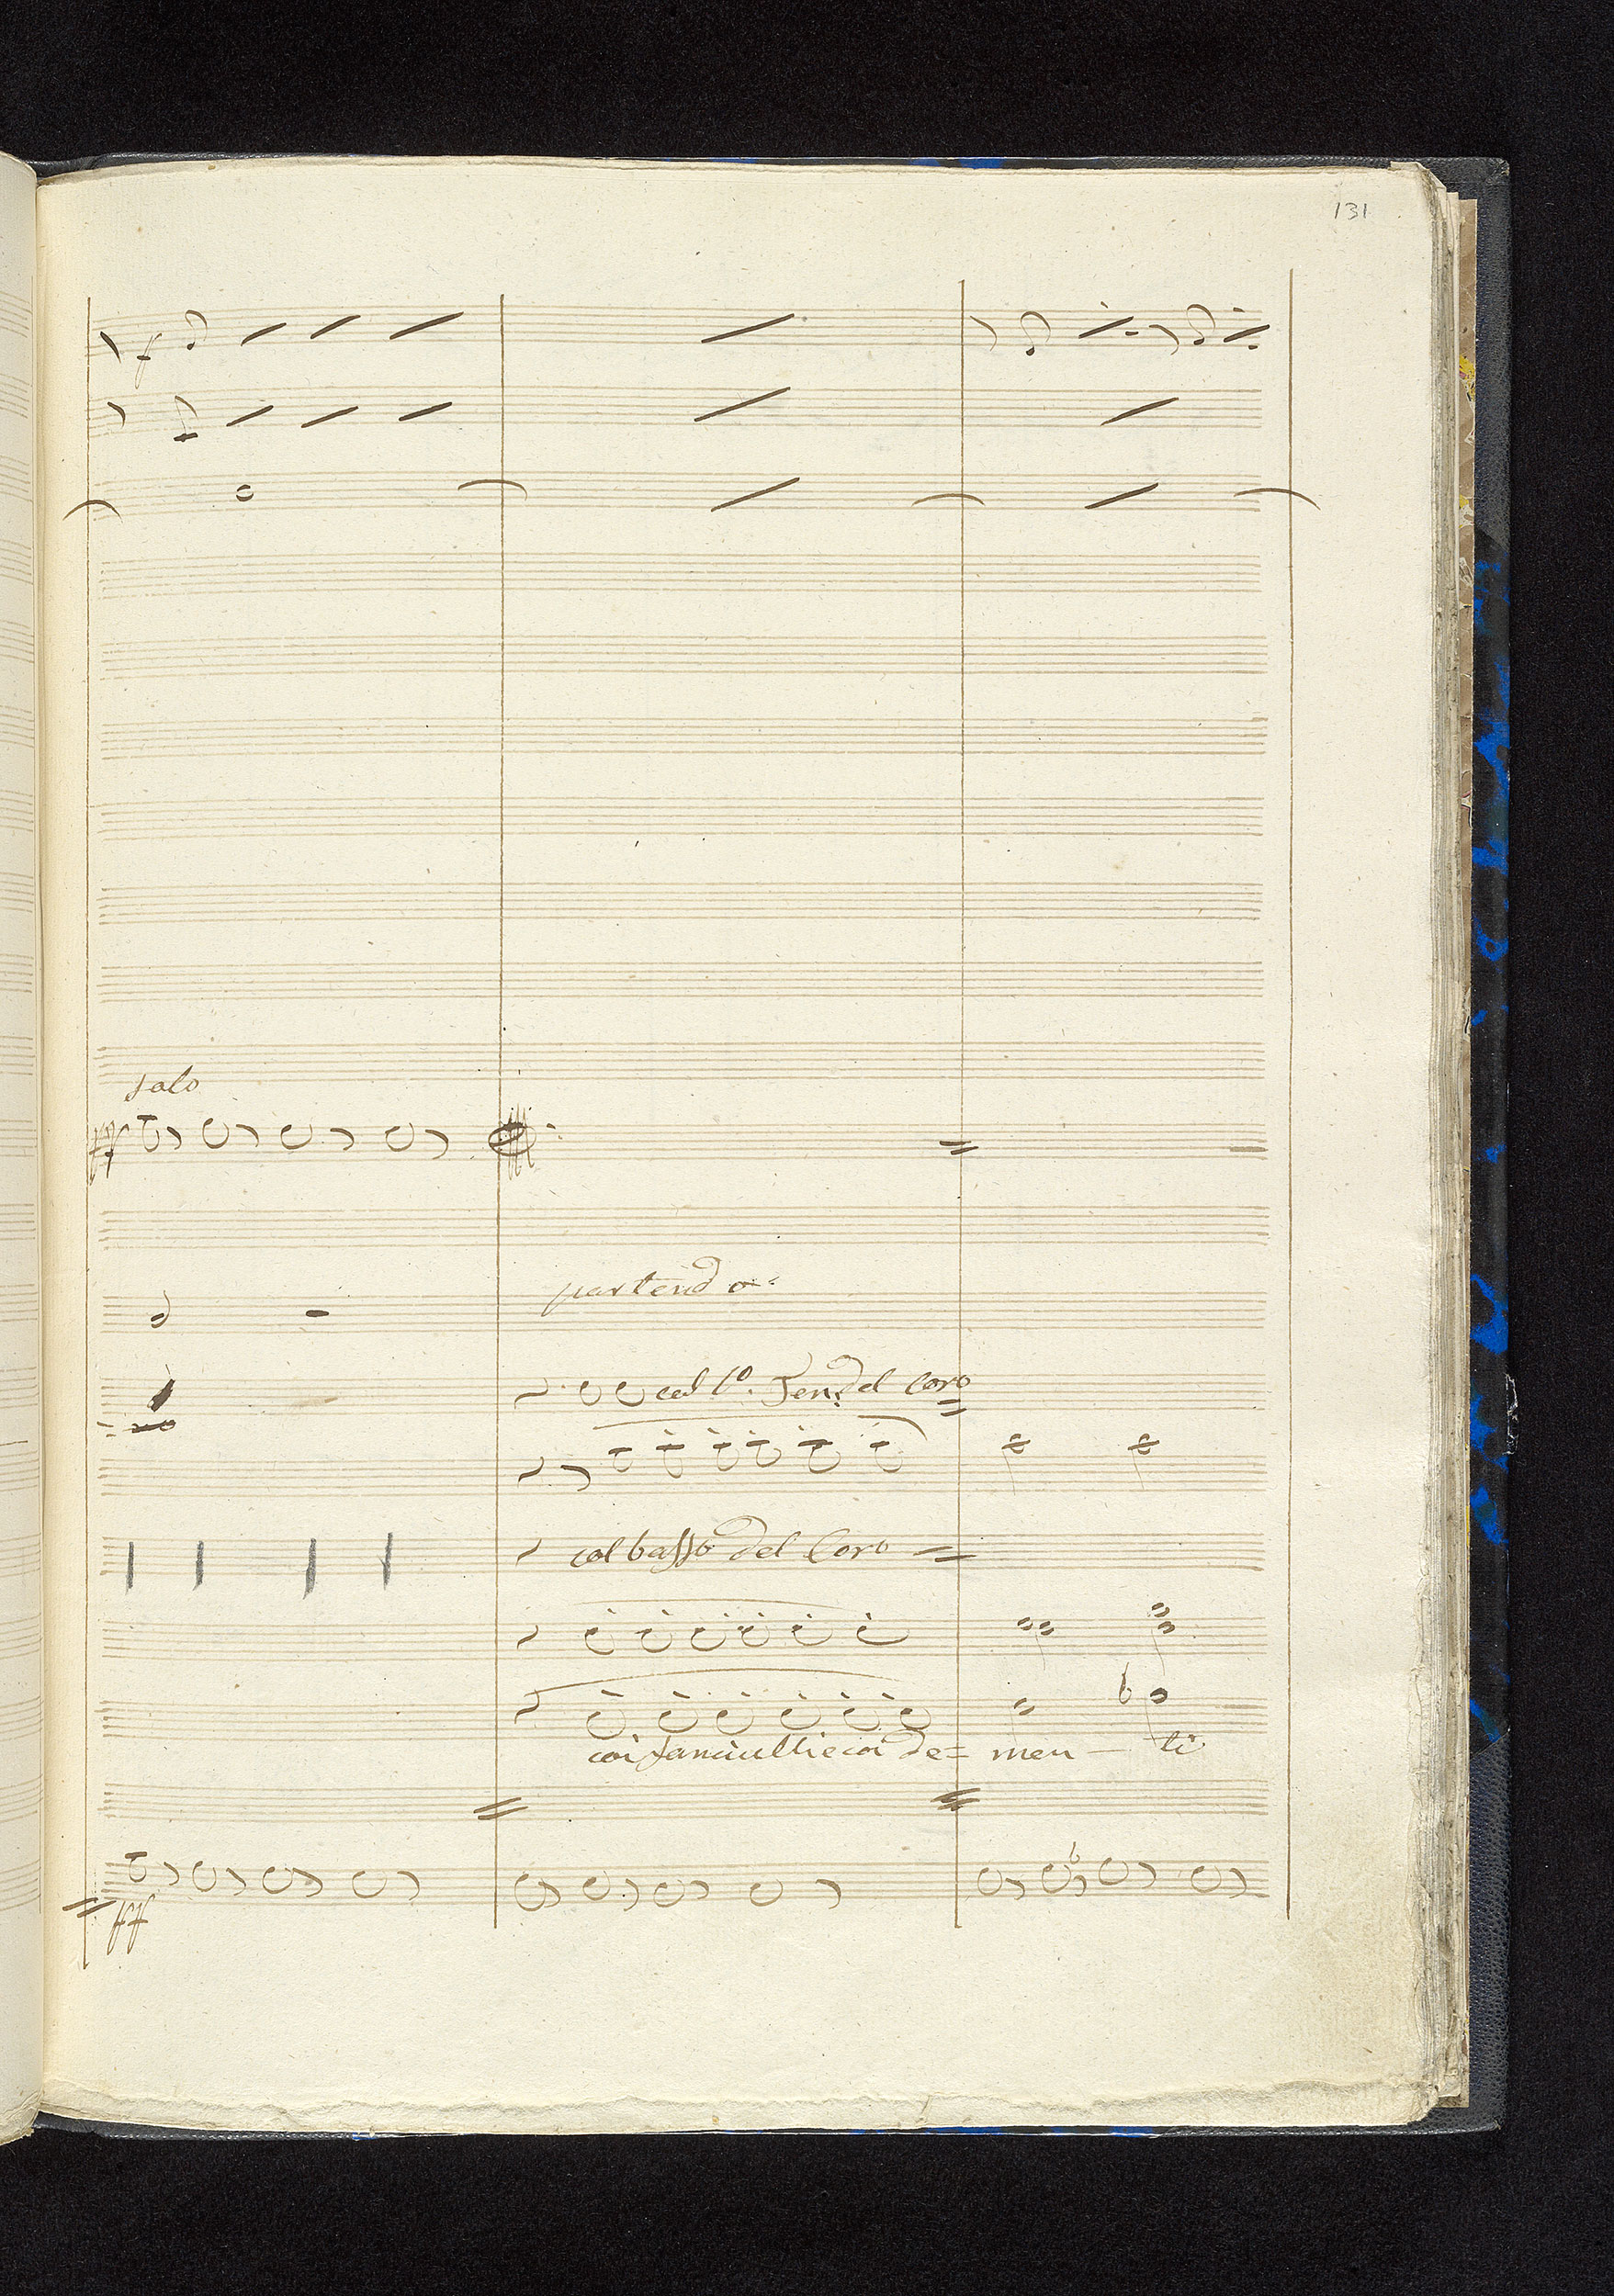 131
solo
ff
partendo
col 1º. Ten: del Coro
no
col basso del Coro
coi fanciulli e coi de= men – ti
ff